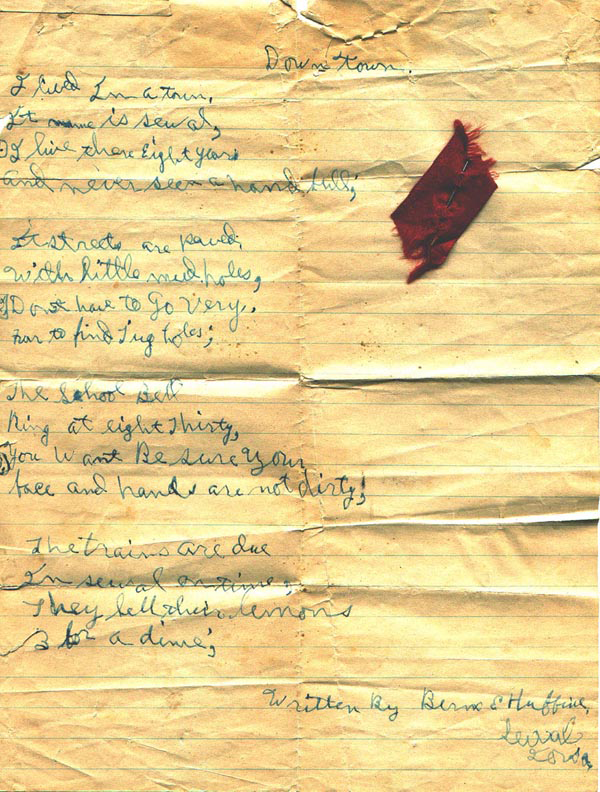 Down Town.
I lived In a town,
It name is sewal,
I live there Eight years
and never seen a hand
It streets are paved,
With little mud holes,
I Dont have to Go Very,
Far to find Pug holes;
The School Bell
Ring at eight Thirty,
You Want Be sure your
face and hands are not dirty!
The trains are due
In sewal on time;
They sell their lemons
3 for a dime;
Written By Huffine,
Sewal
Iowa,